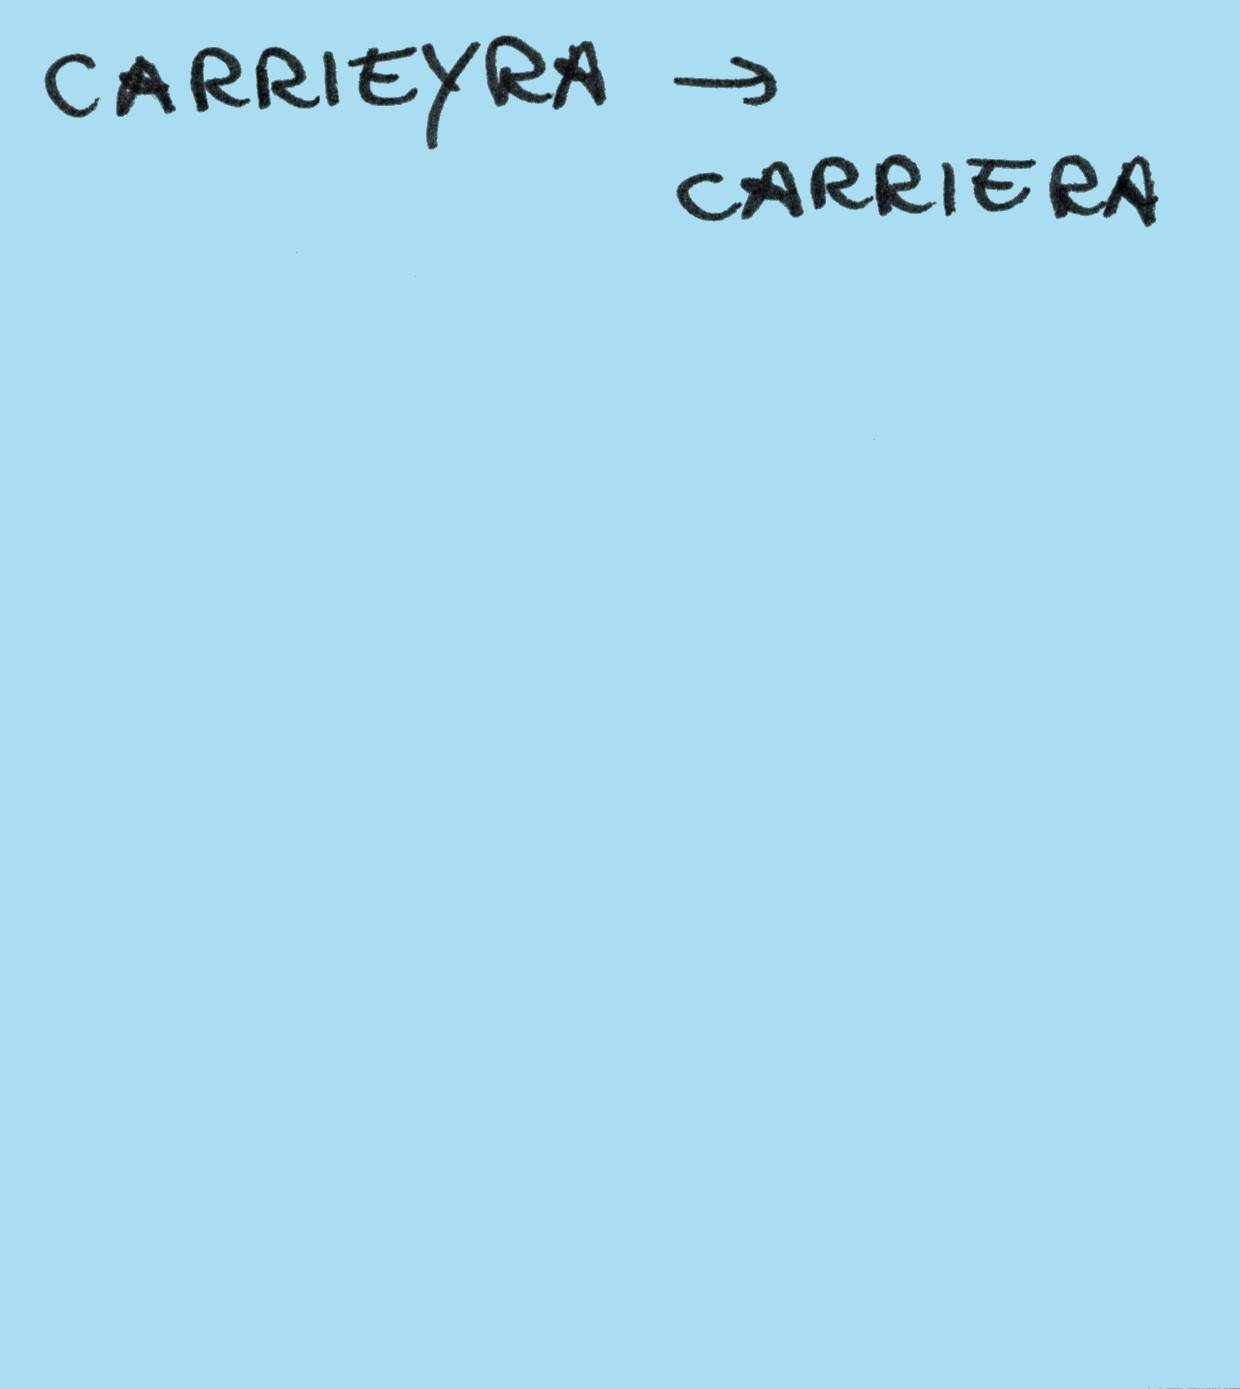 CARRIEYRA →
CARRIERA